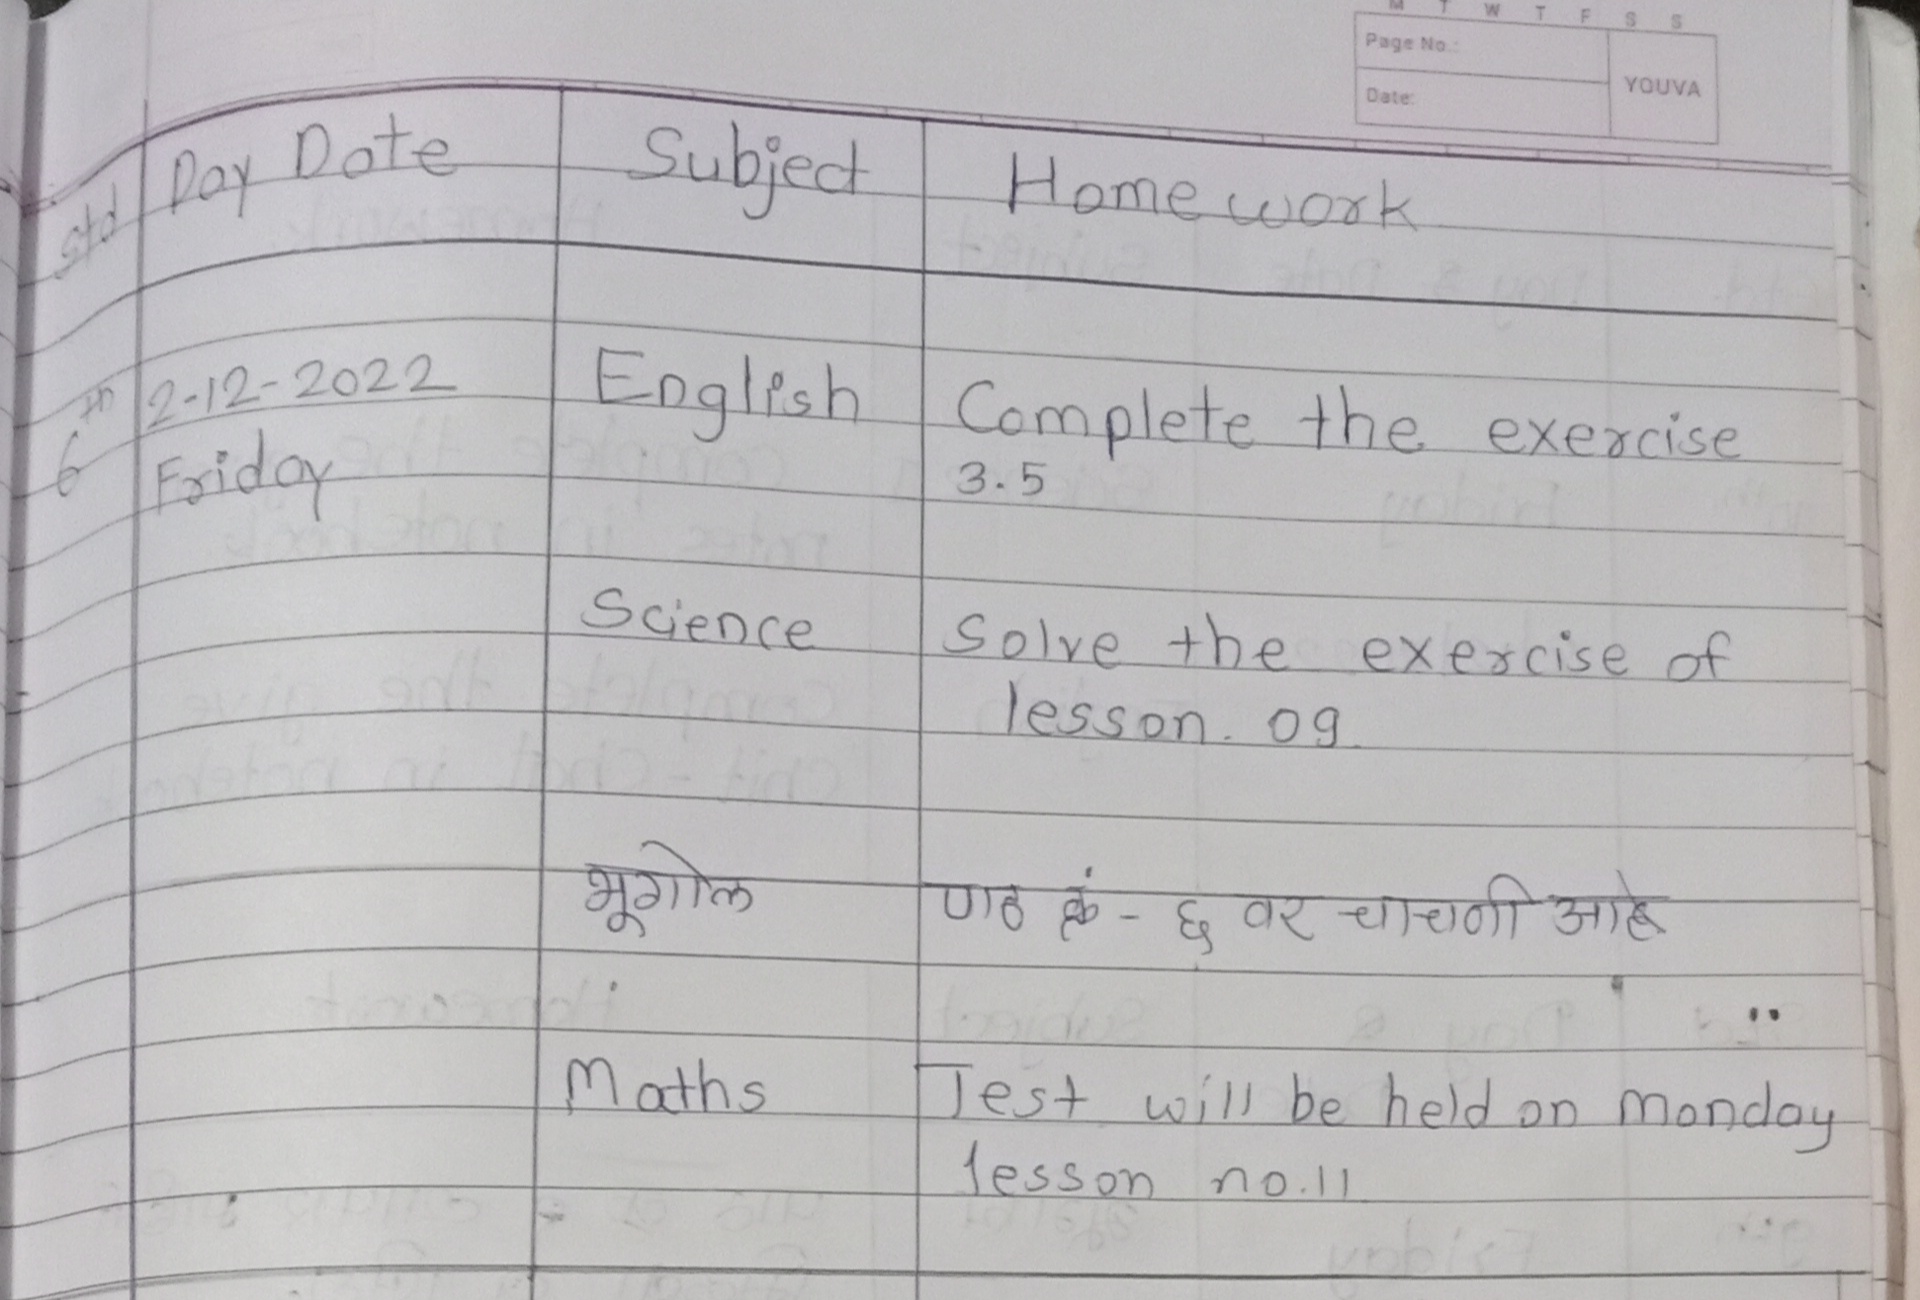 M T W T F S S
Page No.:
Date:
YOUVA
Std Day Date Subject Homework
6th 2-12-2022 English Complete the exercise
Friday 3.5
Science Solve the exercise of
lesson. 09
भूगोल पाठ क्रं - ६ वर चाचणी आहे
Maths Test will be held on Monday
lesson no.11